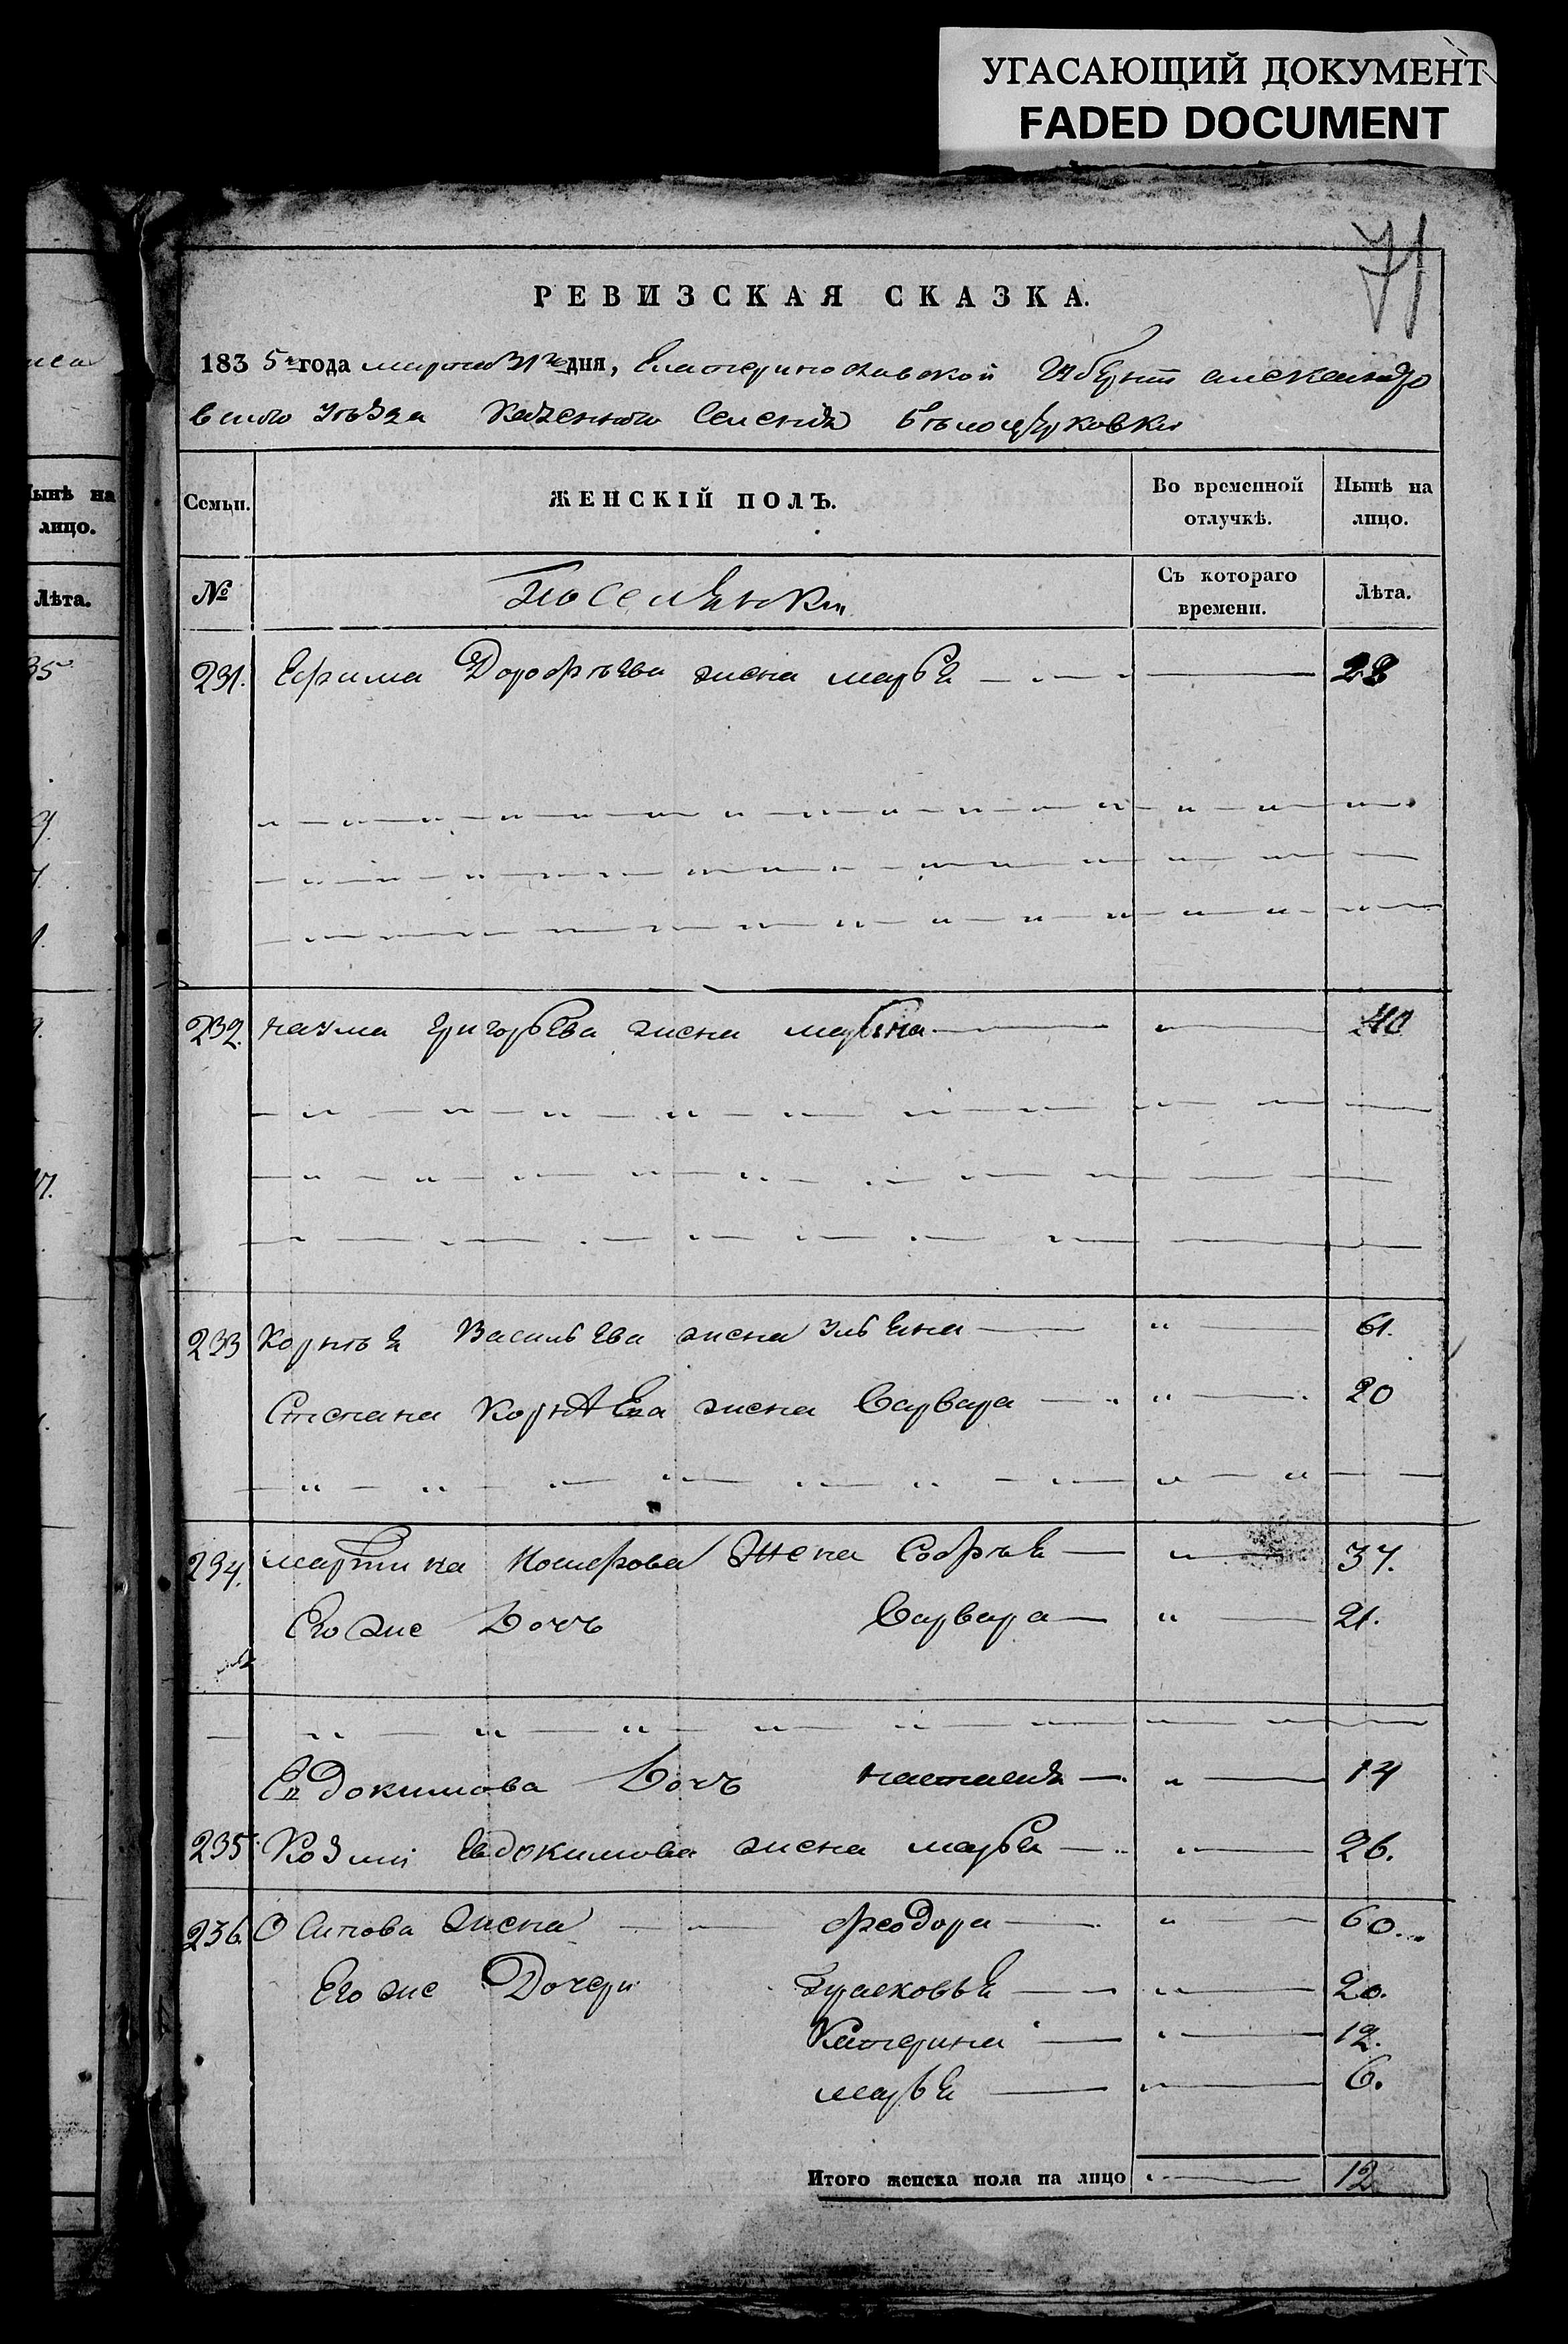 УГАСАЮЩИЙ ДОКУМЕНТ
FADED DOCUMENT
71
РЕВИЗСКАЯ СКАЗКА.
1835го года марта 31го дня, Екатеринославской Губерніи александро
вскаго Уѣзда Казеннаго Селенія Бѣлоцерковки
Семьи. ЖЕНСКІЙ ПОЛЪ. Во временной отлучкѣ. Нынѣ на лицо.
№ Поселянки Съ котораго времени. Лѣта.
231. Ефима Дорофѣева жена марья 28
232. наума григорьева жена марьяна 40
233 Корнѣя Васильева жена Ульяна 61.
Степана Корнѣева жена Варвара 20
234. мартина жена Софья 37.
Его же дочь Варвара 21.
Евдокимова дочь наталія 14
235. Козми Евдокимова жена марья 26.
236. Осипова жена феодора 60.
Его же Дочери Прасковья 20.
Катерина 12.
марья 6.
Итого женска пола на лицо 12
Нынѣ на
лицо.
Лѣта.
35